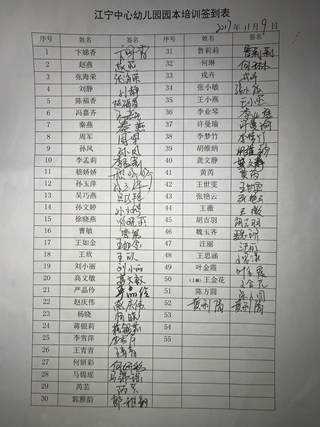 江宁中心幼儿园园本培训签到表
2017年11月9日
序号 姓名 签名 序号 姓名 签名
1 卞娣香 卞娣香 31 鲁莉莉 鲁莉莉
2 赵燕 赵燕 32 何琳 何琳
3 张海荣 张海荣 33 戎卉 戎卉
4 刘静 刘静 34 张小敏
5 陈福香 陈福香 35 王小燕 王小燕
6 冯嘉齐 36 李业琴 李业琴
7 秦燕 秦燕 37 许曼瑜 许曼瑜
8 周军 周军 38 李梦竹 李梦竹
9 孙凤 孙凤 39 胡维纳
10 李孟莉 40 龚文静 龚文静
11 嵇娇娇 41 黄芮 黄芮
12 孙玉萍 42 王世雯 王世雯
13 吴巧燕 43 张艳云 张艳云
14 孙文婷 孙文婷 44 王薇 王薇
15 徐晓燕 徐晓燕 45 胡吉羽
16 曹敏 曹敏 46 魏玉齐
17 王如金 王如金 47 汪丽 汪丽
18 王欣 王欣 48 王思涵
19 刘小丽 刘小丽 49 叶金霞 叶金霞
20 高文敏 高文敏 50 王金花 王金花
21 严晶伶 51 陈方圆 陈方圆
22 赵庆伟 赵庆伟 52 黄利闻
23 杨晓 杨晓 53
24 蒋银莉 54
25 李雪萍 55
26 王青青 王青青
27 何妍彩 何妍彩
28 马锦瑶 马锦瑶
29 芮芸 芮芸
30 郭雅韵 郭雅韵